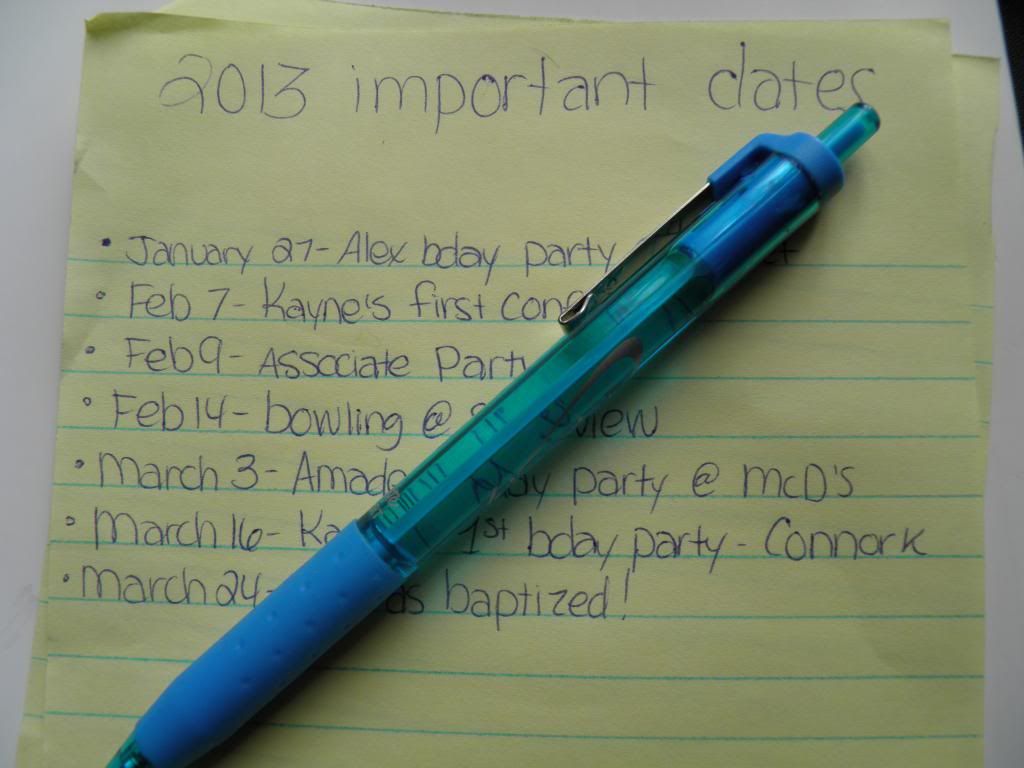 2013 important dates
• January 27- Alex bday party
• Feb 7- Kayne's first
• Feb 9- Associate Party
• Feb 14- bowling @
• March 3- bday party @ McD's
• March 16- 1st bday party- Connor K
• March 24- baptized!